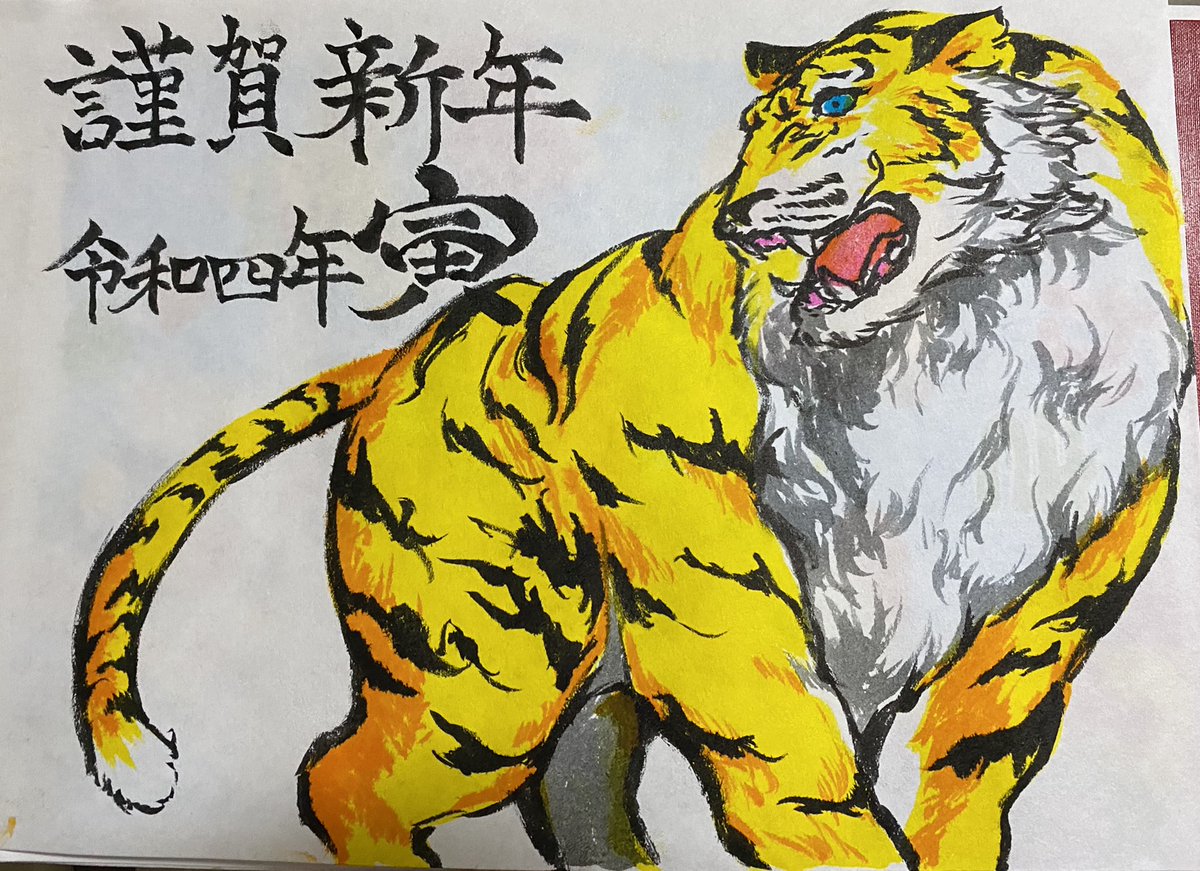 謹賀新年
令和四年寅